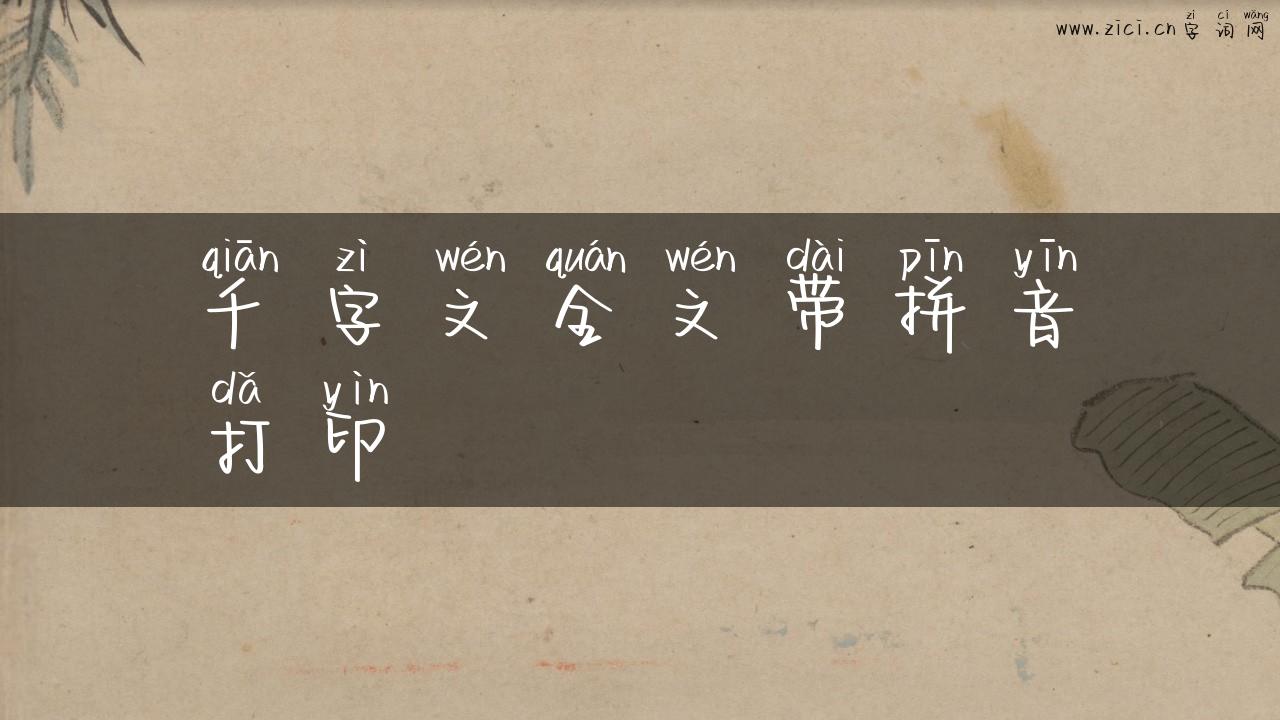 zì cí wǎng
www.zici.cn字词网
qiān zì wén quán wén dài pīn yīn
千字文全文带拼音
dǎ yìn
打印